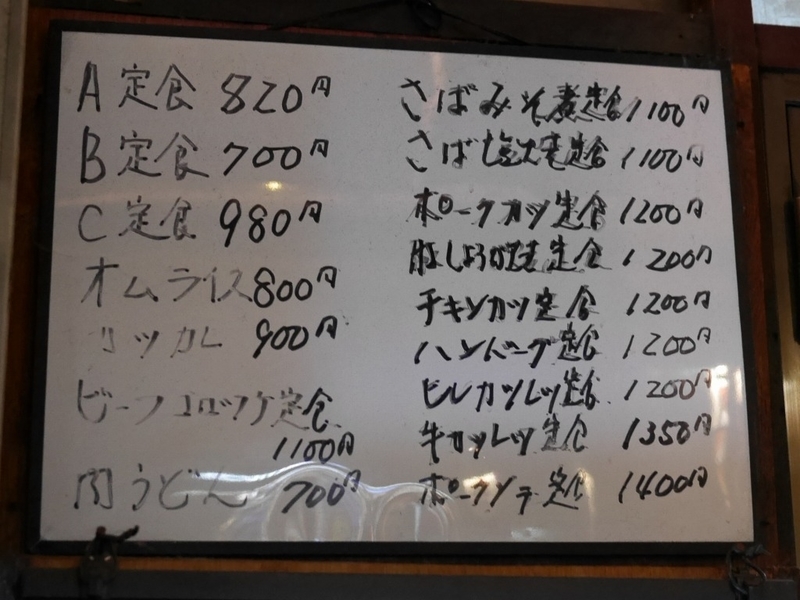 A定食 820円
B定食 700円
C定食 980円
オムライス 800円
カツカレ 900円
ビーフコロッケ定食
1100円
肉うどん 700円
さばみそ煮定食 1100円
さば塩焼定食 1100円
ポークカツ定食 1200円
豚しょうが焼定食 1200円
チキンカツ定食 1200円
ハンバーグ定食 1200円
ヒレカツレツ定食 1200円
牛カツレツ定食 1350円
ポークソテ定食 1400円